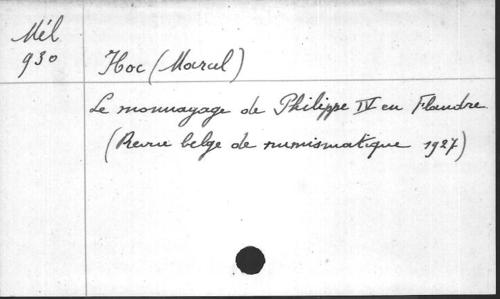 Mél
930
Hoc (Marcel)
Le monnayage de Philippe IV en Flandre
(Revue belge de numismatique 1927)